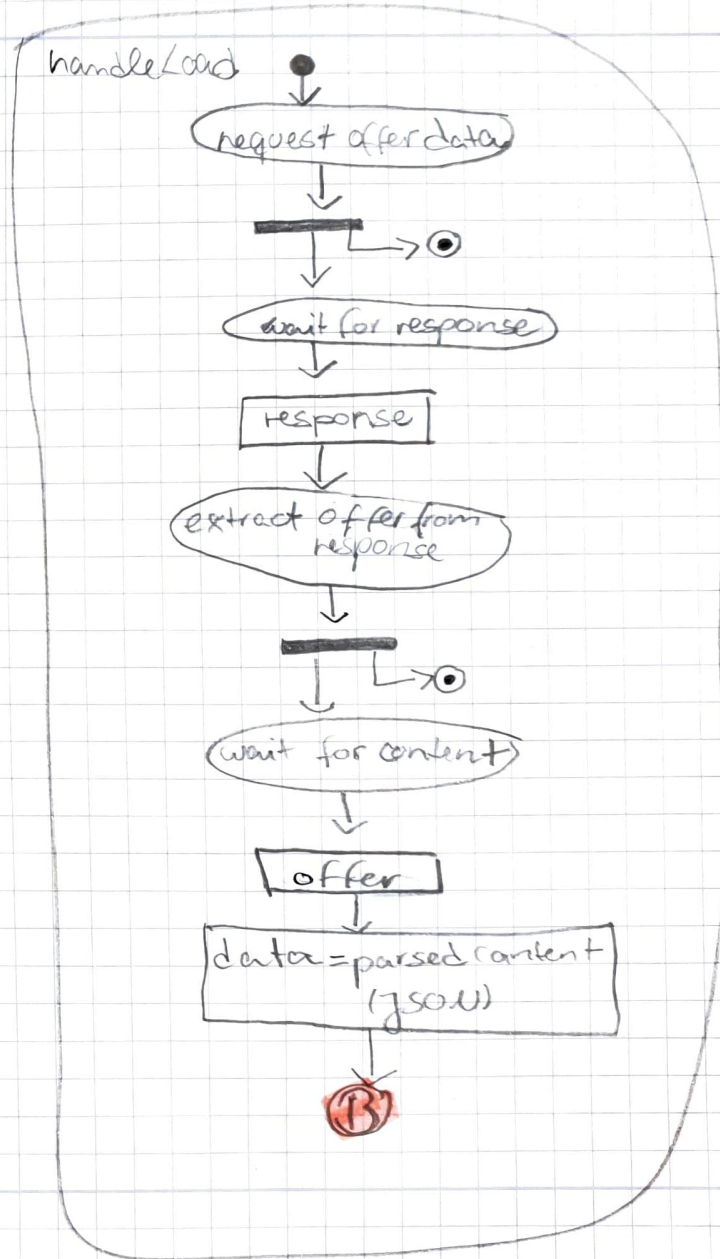 handleLoad
request offer data
wait for response
response
extract offer from
response
wait for content
offer
data = parsed content
(JSON)
B